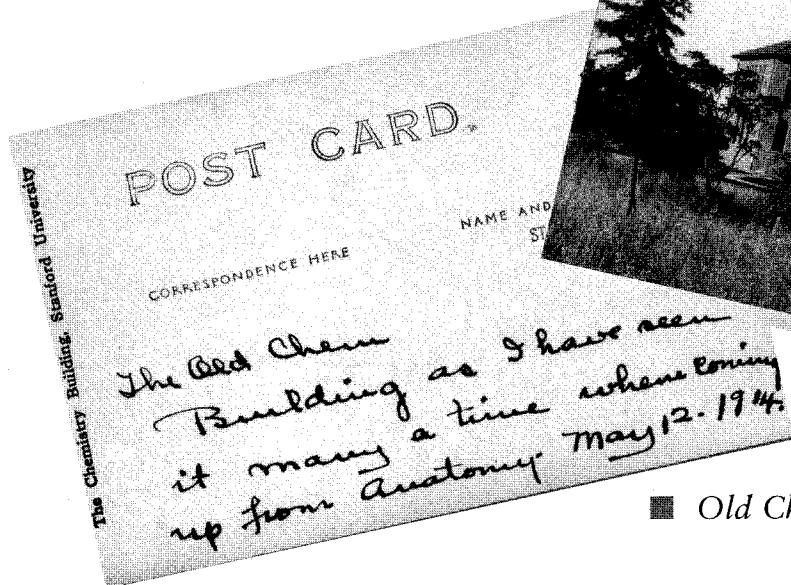 The Chemistry Building, Stanford University
POST CARD.
CORRESPONDENCE HERE
NAME AND
ST
The Old Chem
Building as I have seen
it many a time when coming
up from Anatomy. May 12. 1914.
■ Old Ch